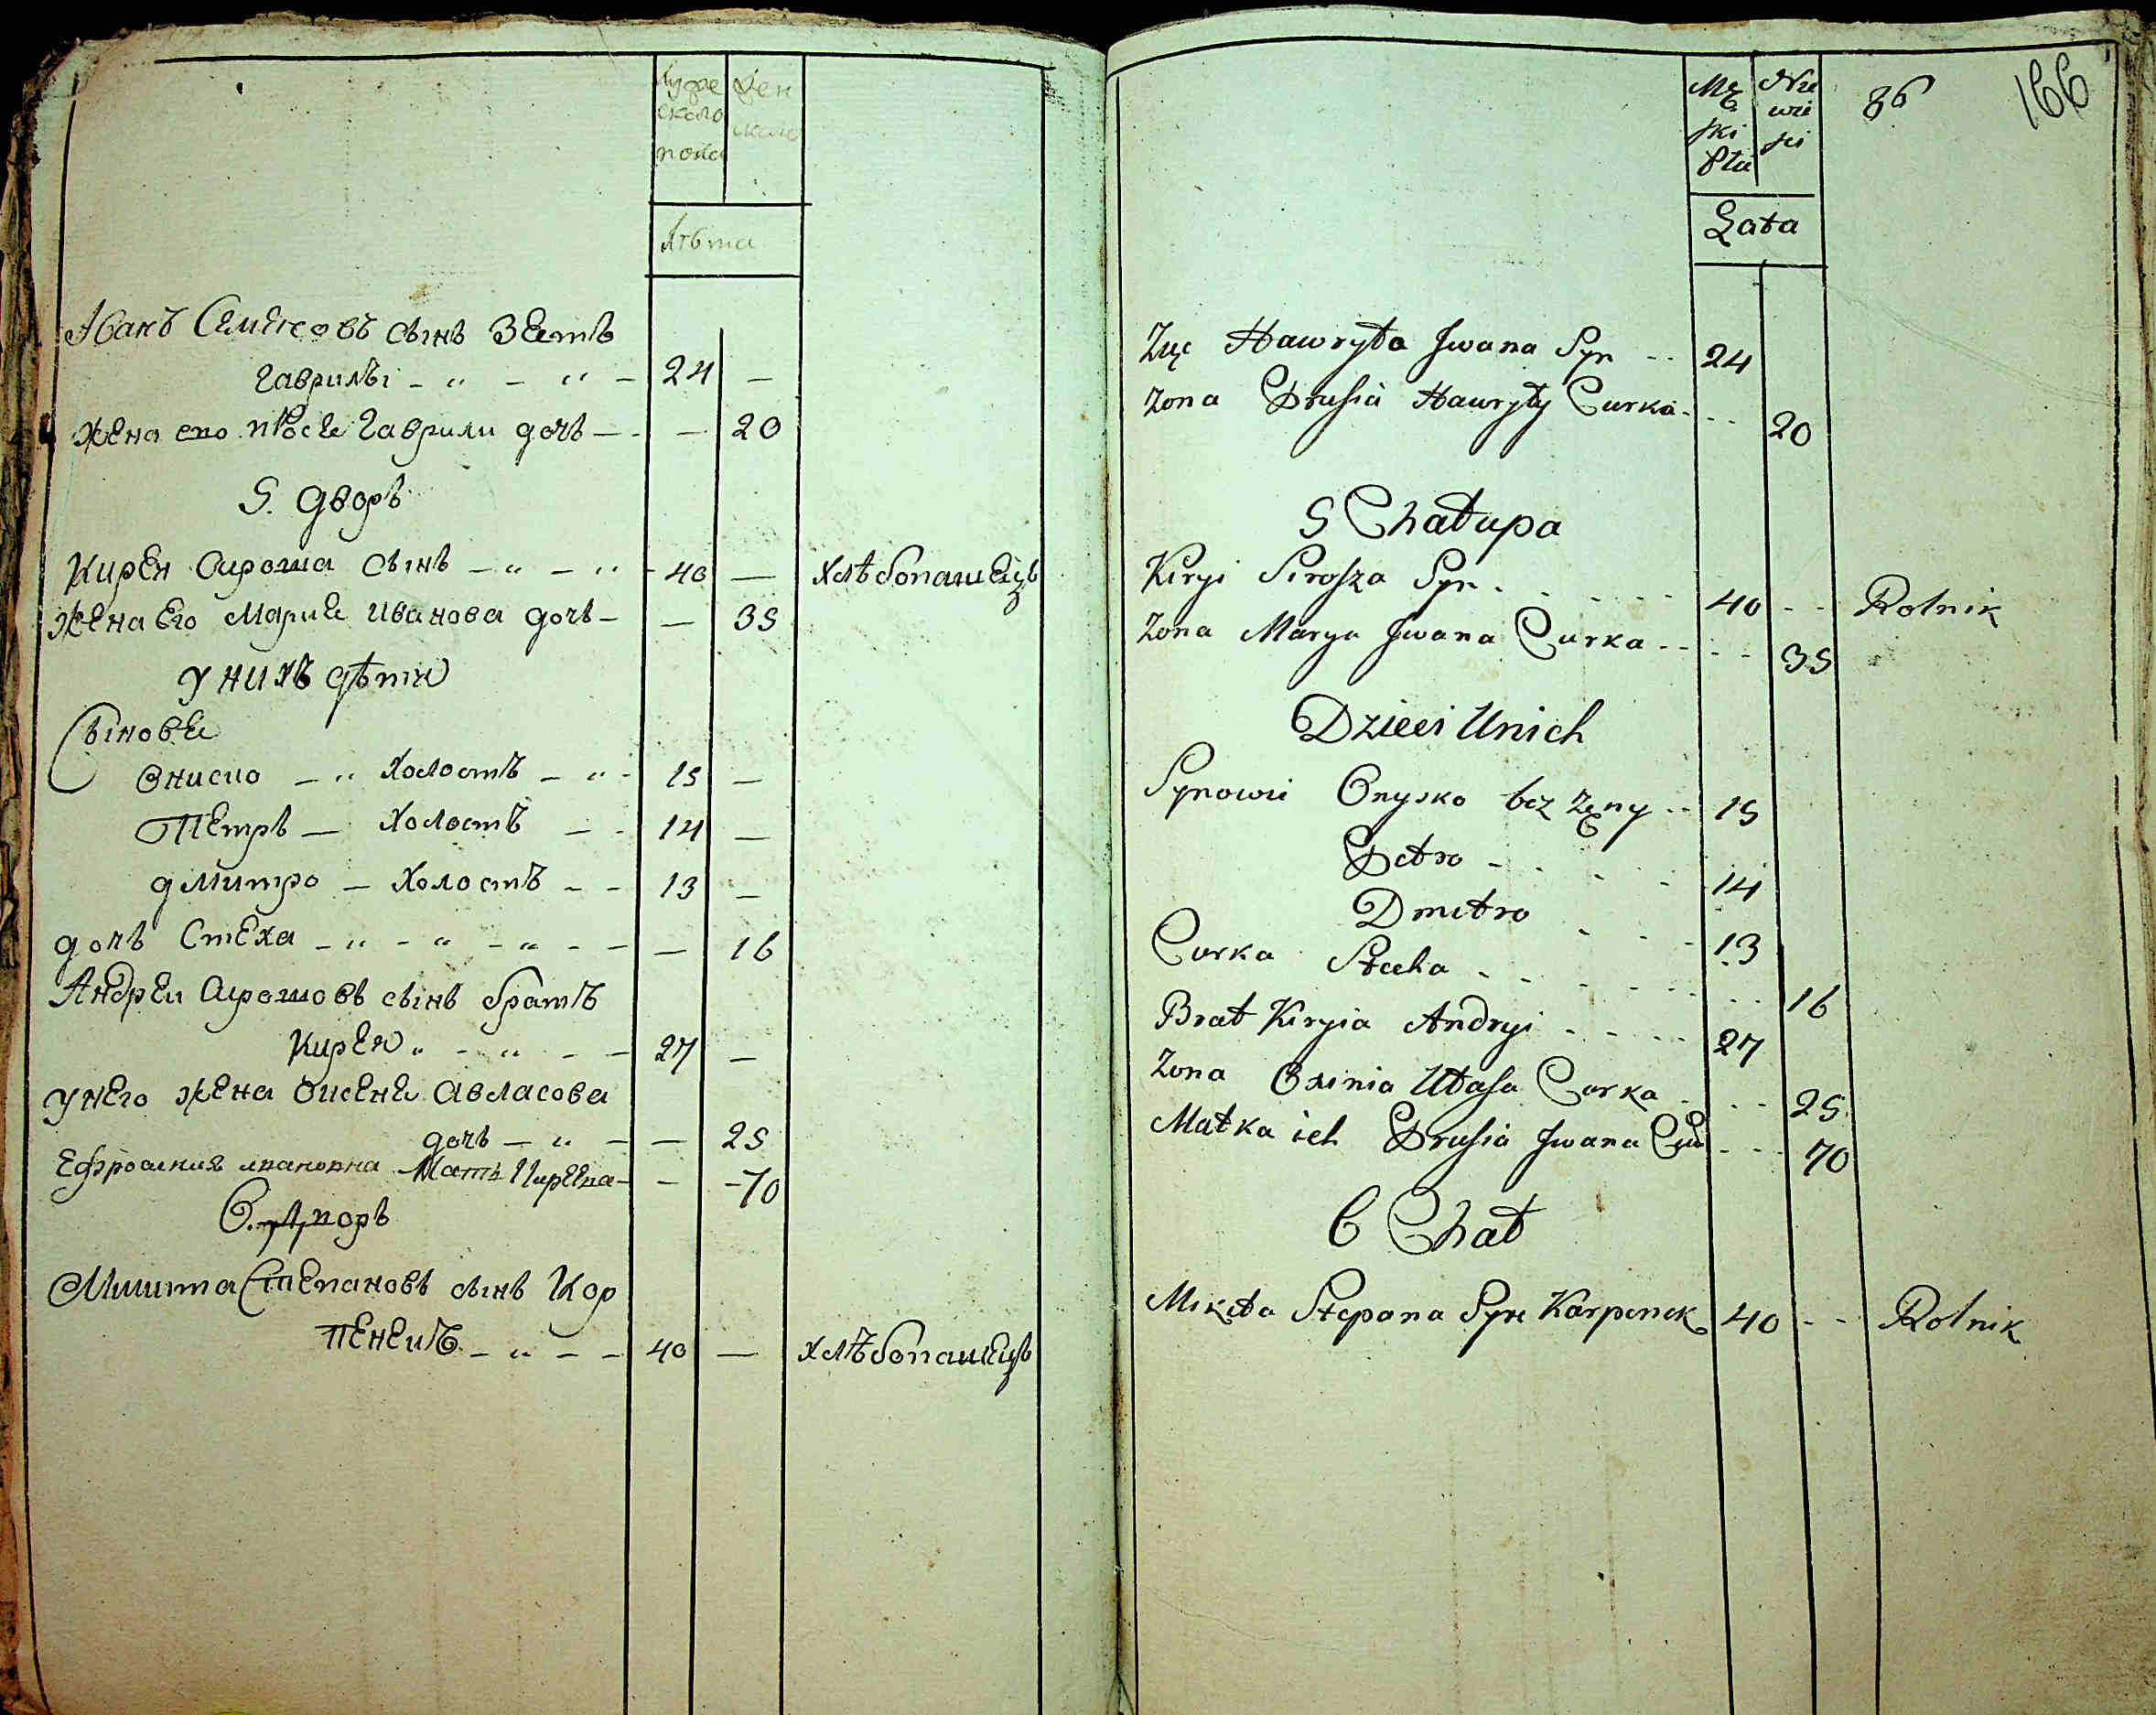 Муже Жен
скаго скаго
пола
лѣта
Иванъ Семеновъ сынъ зеть
Гаврилы - „ - „ - 24 —
жена его Прося Гаврили дочь — - — 20
5. дворъ
Кирей Сироша сынъ - „ - „ - 40 — хлѣбопашецъ
жена его Марие Иванова дочь - — 35
у нихъ дѣти
Сыновея
Онисио - „ холостъ - „ - 15 —
Петръ — холостъ - - 14 —
дмитро — холостъ - - 13 —
дочь Стеха - „ - „ - „ - - — 16
Андреи Сирошовъ сынъ братъ
Кирея „ - „ - - 27 —
у него жена Оксене Авласова
дочь - „ - — 25
Ефросиния ивановна Мать Кирѣева - - -70
6. дворъ
Микита Степановъ сынъ Кор
пенеиъ - „ - - 40 — хлѣбопашецъ
Mę Nie 86 166
ski wie
Płci sci
Lata
Zięc Hawryła Jwana Syn - - 24
Zona Prusia Hawryły Curka - - - 20
5 Chałupa
Kiryi Sirosza Syn - - - - - 40 - - Rolnik
Zona Marya Jwana Curka - - - - 35
Dzieci Unich
Synowie Onysko bez Zeny - - 15
Petro - - - - - 14
Dmitro - - - 13
Curka Stecha - - - - - - - 16
Brat Kiryia Andryi - - - - 27
Zona Oxinia Ułasa Curka - - - 25
Matka ich Prusia Jwana Cur - - - 70
6 Chał
Mikita Stepana Syn Karpenek 40 - - Rolnik